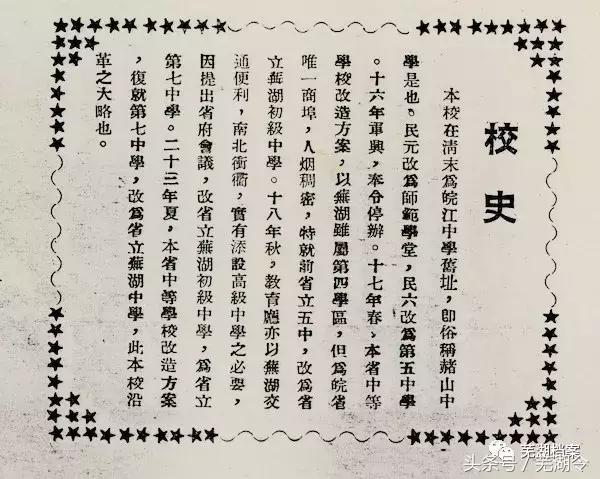 校史
本校在清末爲皖江中學舊址，卽俗稱赭山中
學是也。民元改爲師範學堂，民六改爲第五中學
。十六年軍興，奉令停辦。十七年春，本省中等
學校改造方案，以蕪湖雖屬第四學區，但爲皖省
唯一商埠，人烟稠密，特就前省立五中，改爲省
立蕪湖初級中學。十八年秋，教育廳亦以蕪湖交
通便利，南北衝衢，實有添設高級中學之必要，
因提出省府會議，改省立蕪湖初級中學，爲省立
第七中學。二十三年夏，本省中等學校改造方案
，復就第七中學，改爲省立蕪湖中學，此本校沿
革之大略也。
芜湖档案
头条号/芜湖令